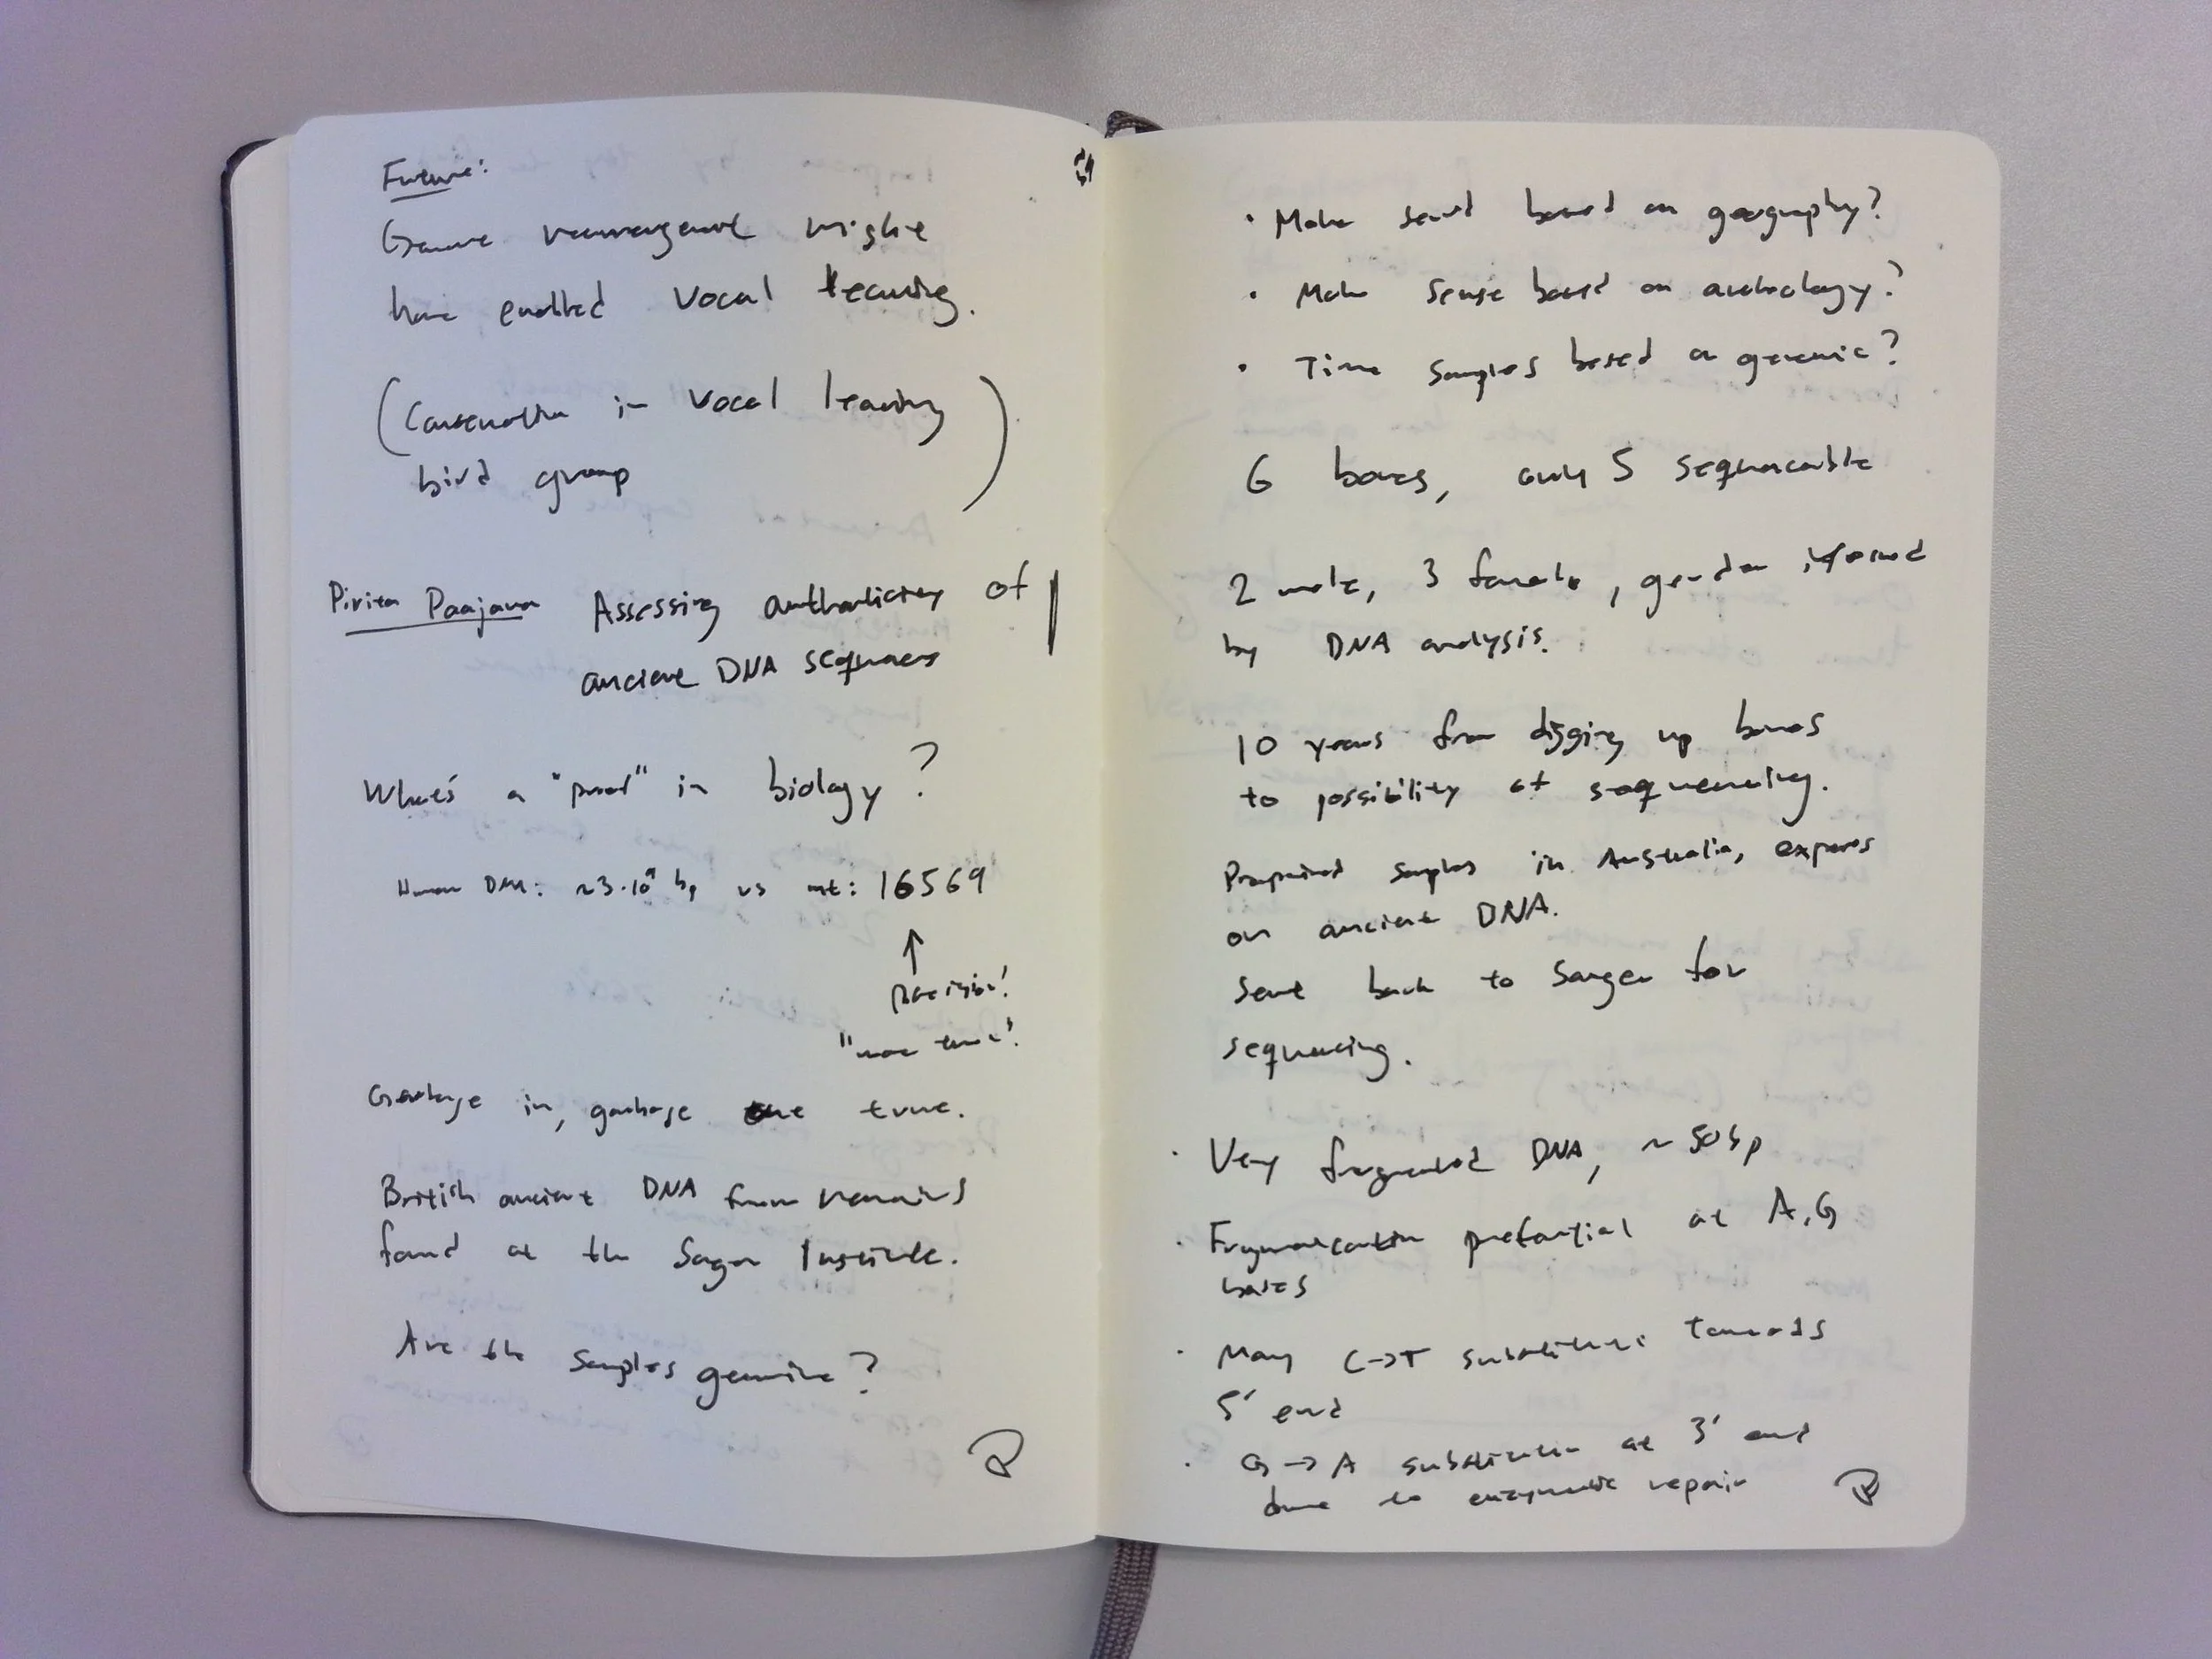 Future:
Genome rearrangement might
have enabled vocal learning.
(Conservation in vocal learning
bird group)
Pirita Paajanen Assessing authenticity of
ancient DNA sequences
What's a "proof" in biology?
Human DNA: ~3·10⁹ bp vs mt: 16569
↑
precision!
"more true"!
Garbage in, garbage out true.
British ancient DNA from remains
found at the Sanger Institute.
Are the samples genuine?
• Make sense based on geography?
• Make sense based on archeology?
• Time samples based on genomic?
6 bones, only 5 sequencable
2 male, 3 female, gender inferred
by DNA analysis.
10 years from digging up bones
to possibility of sequencing.
Prepaired samples in Australia, experts
on ancient DNA.
Sent back to Sanger for
sequencing.
• Very fragmented DNA, ~50bp
• Fragmentation prefential at A,G
bases
• Many C→T substitutions towards
5' end
• G→A substitution at 3' end
due to enzymatic repair